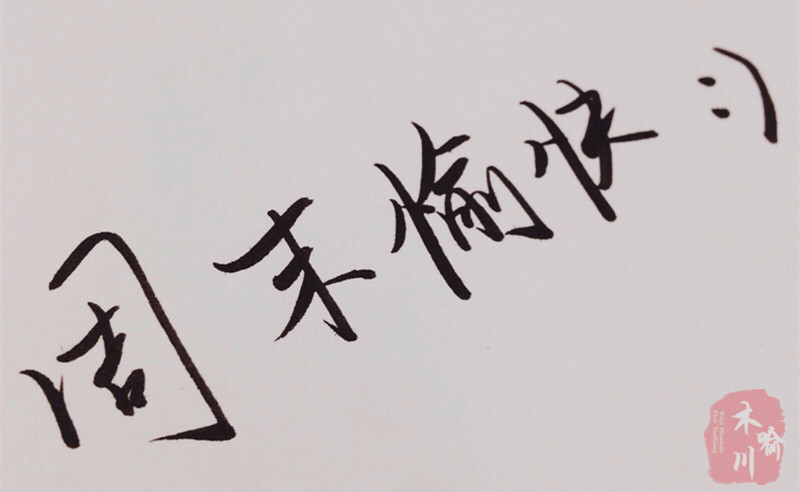 周末愉快 :)
木喻川